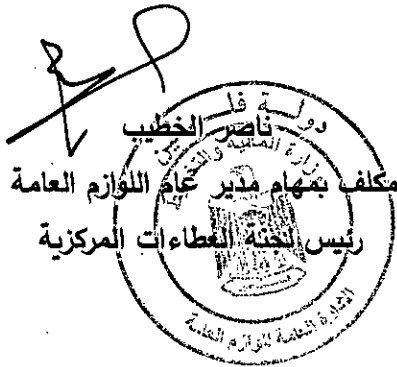 ناصر الخطيب
مكلف بمهام مدير عام اللوازم العامة
رئيس لجنة العطاءات المركزية
دولة فلسطين
وزارة المالية والتخطيط
الإدارة العامة للوازم العامة